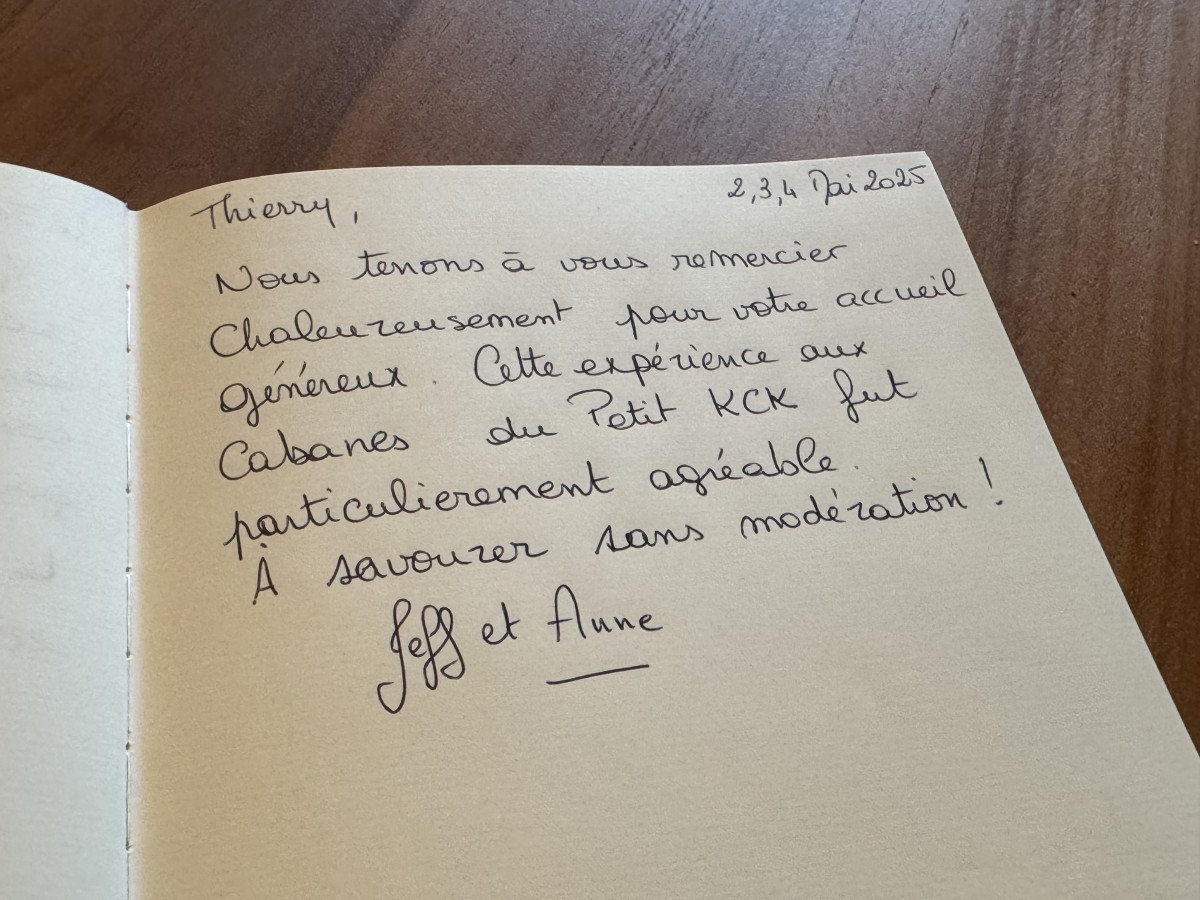 2,3,4 Mai 2025
Thierry,
Nous tenons à vous remercier
Chaleureusement pour votre accueil
généreux. Cette expérience aux
Cabanes du Petit KCK fut
particulierement agréable.
À savourer sans modération !
Jeff et Anne